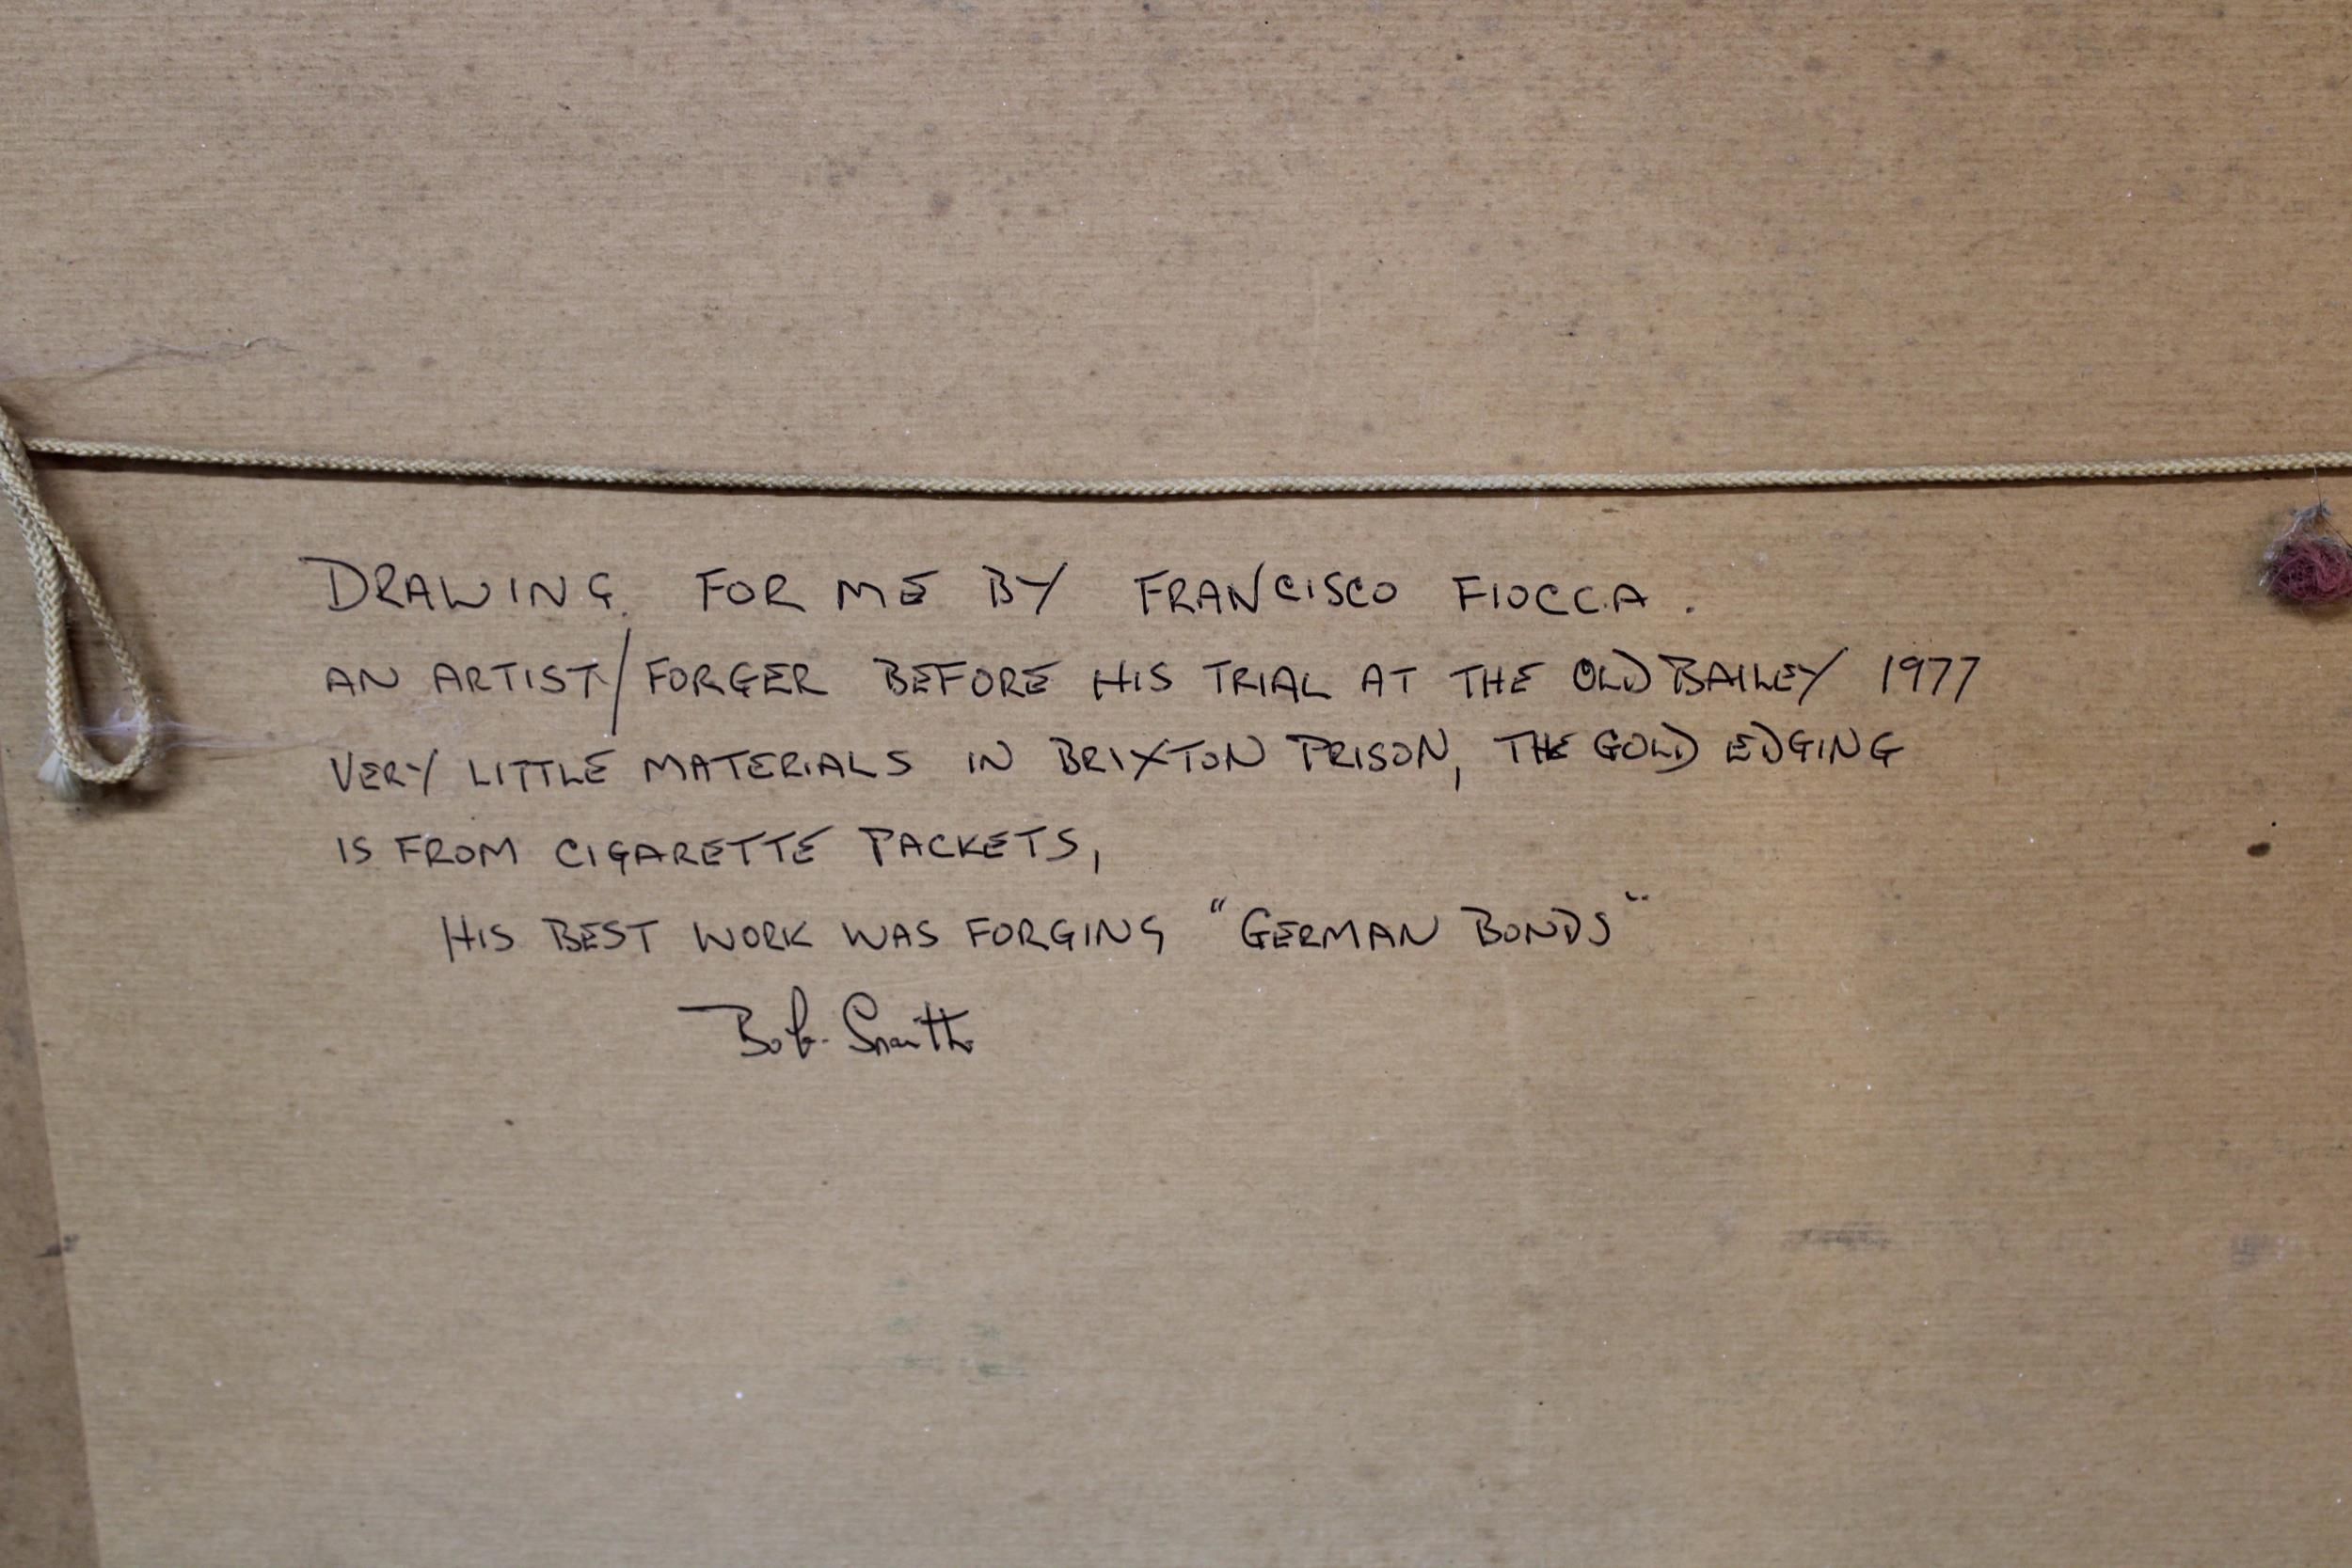 DRAWING FOR ME BY FRANCISCO FIOCCA.
AN ARTIST/FORGER BEFORE HIS TRIAL AT THE OLD BAILEY 1977
VERY LITTLE MATERIALS IN BRIXTON PRISON, THE GOLD EDGING
IS FROM CIGARETTE PACKETS,
HIS BEST WORK WAS FORGING "GERMAN BONDS"
Bob Smith